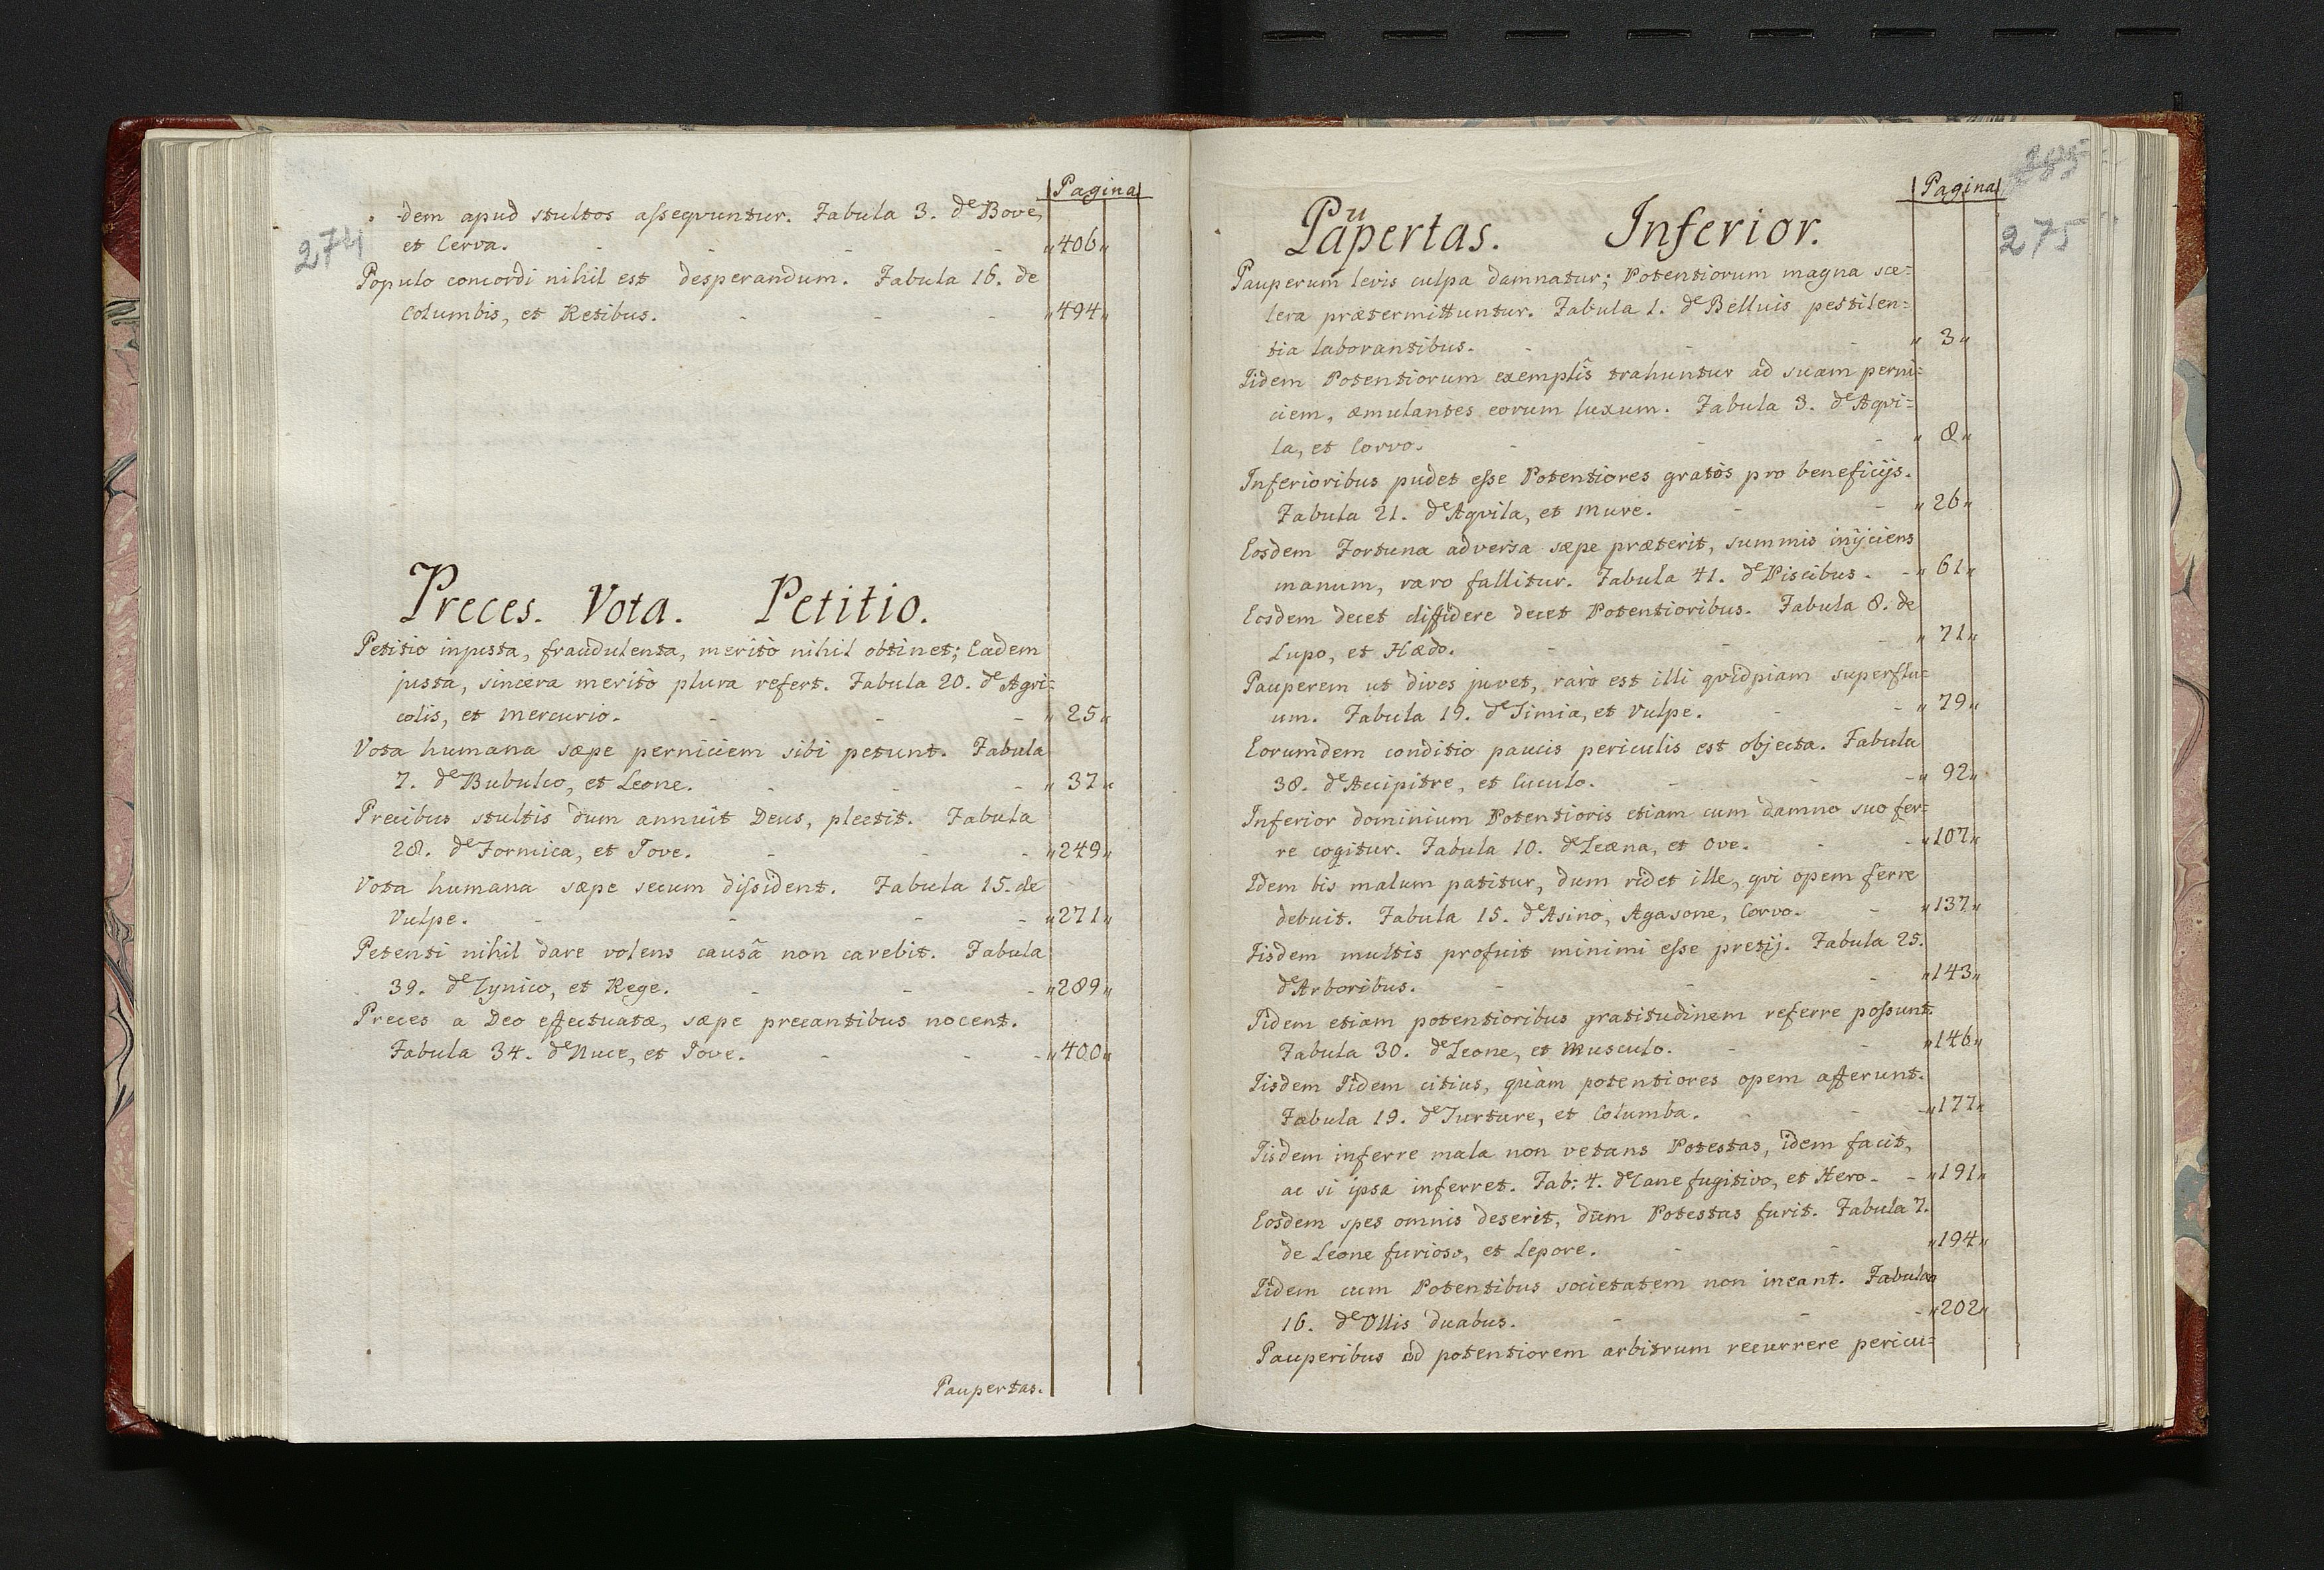 Pagina
dem apud stultos assequuntur. Fabula 3. de Bove,
et Cerva. - - - - „406„
274
Populo concordi nihil est desperandum. Fabula 16. de
Columbis, et Retibus. - - - „494„
Preces. Vota. Petitio.
Petitio injusta, fraudulenta, meritò nihil obtinet; Eadem
justa, sincera meritò plura refert. Fabula 20. de Agri=
colis, et Mercurio. - - - „25„
Vota humana sæpe perniciem sibi petunt. Fabula
7. de Bubulco, et Leone. - - - „37„
Precibus stultis dum annuit Deus, plectit. Fabula
28. de Formica, et Jove. - - - „249„
Vota humana sæpe secum dissident. Fabula 15. de
Vulpe. - - - - „271„
Petenti nihil dare volens causâ non carebit. Fabula
39. de Cynico, et Rege. - - - „289„
Preces a Deo effectuatæ, sæpe precantibus nocent.
Fabula 34. de Nuce, et Jove. - - - „400„
Paupertas.
Pagina
275
Paupertas. Inferior.
Pauperum levis culpa damnatur; Potentiorum magna sce=
lera prætermittuntur. Fabula 1. de Belluis pestilen=
tia laborantibus. - - - „3„
Iidem Potentiorum exemplis trahuntur ad suam perni=
ciem, æmulantes eorum luxum. Fabula 3. de Aqvi=
la, et Corvo. - - - „8„
Inferioribus pudet esse Potentiores gratos pro beneficijs.
Fabula 21. de Aqvila, et Mure. - - „26„
Eosdem Fortuna adversa sæpe præterit, summis inijciens
manum, raro fallitur. Fabula 41. de Piscibus. - „61„
Eosdem decet diffidere decet Potentioribus. Fabula 8. de
Lupo, et Hædo. - - - „71„
Pauperem ut dives juvet, rarò est illi qvidpiam superflu=
um. Fabula 19. de Simia, et Vulpe. - - „79„
Eorumdem conditio paucis periculis est objecta. Fabula
38. de Accipitre, et Cuculo. - - - „92„
Inferior dominium Potentioris etiam cum damno suo fer=
re cogitur. Fabula 10. de Leæna, et Ove. - - „107„
Idem bis malum patitur, dum ridet ille, qvi opem ferre
debuit. Fabula 15. de Asino, Agasone, Corvo. - „137„
Iisdem multis profuit minimi esse pretij. Fabula 25.
de Arboribus. - - - „143„
Iidem etiam potentioribus gratitudinem referre possunt.
Fabula 30. de Leone, et Musculo. - - „146„
Iisdem Iidem citius, quàm potentiores opem afferunt.
Fabula 19. de Turture, et Columba. - - „177„
Iisdem inferre mala non vetans Potestas, idem facit,
ac si ipsa inferret. Fab: 4. de Cane fugitivo, et Hero. - „191„
Eosdem spes omnis deserit, dum Potestas furit. Fabula 7.
de Leone furioso, et Lepore. - - „194„
Iidem cum Potentibus societatem non ineant. Fabula
16. de Ollis duabus. - - - „202„
Pauperibus ad potentiorem arbitrum recurrere pericu=